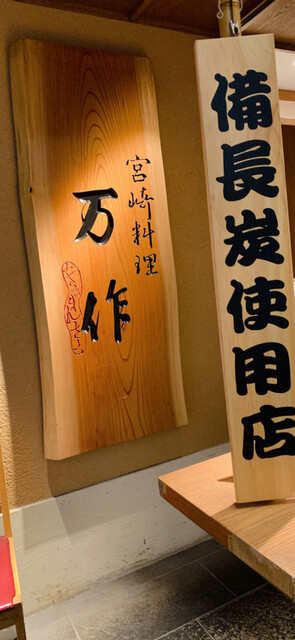 宮崎料理
万作
備長炭使用店